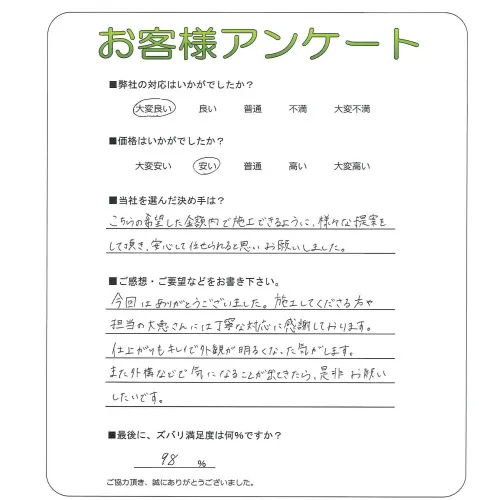 お客様アンケート
■弊社の対応はいかがでしたか?
大変良い 良い 普通 不満 大変不満
■価格はいかがでしたか?
大変安い 安い 普通 高い 大変高い
■当社を選んだ決め手は?
こちらの希望した金額内で施工できるように、様々な提案を
して頂き、安心して任せられると思いお願いしました。
■ご感想・ご要望などをお書き下さい。
今回はありがとうございました。施工してくださる方や
担当の大恵さんには丁寧な対応に感謝しております。
仕上がりもキレイで外観が明るくなった気がします。
また外構などで気になることが出てきたら、是非お願い
したいです。
■最後に、ズバリ満足度は何%ですか?
98 %
ご協力頂き、誠にありがとうございました。